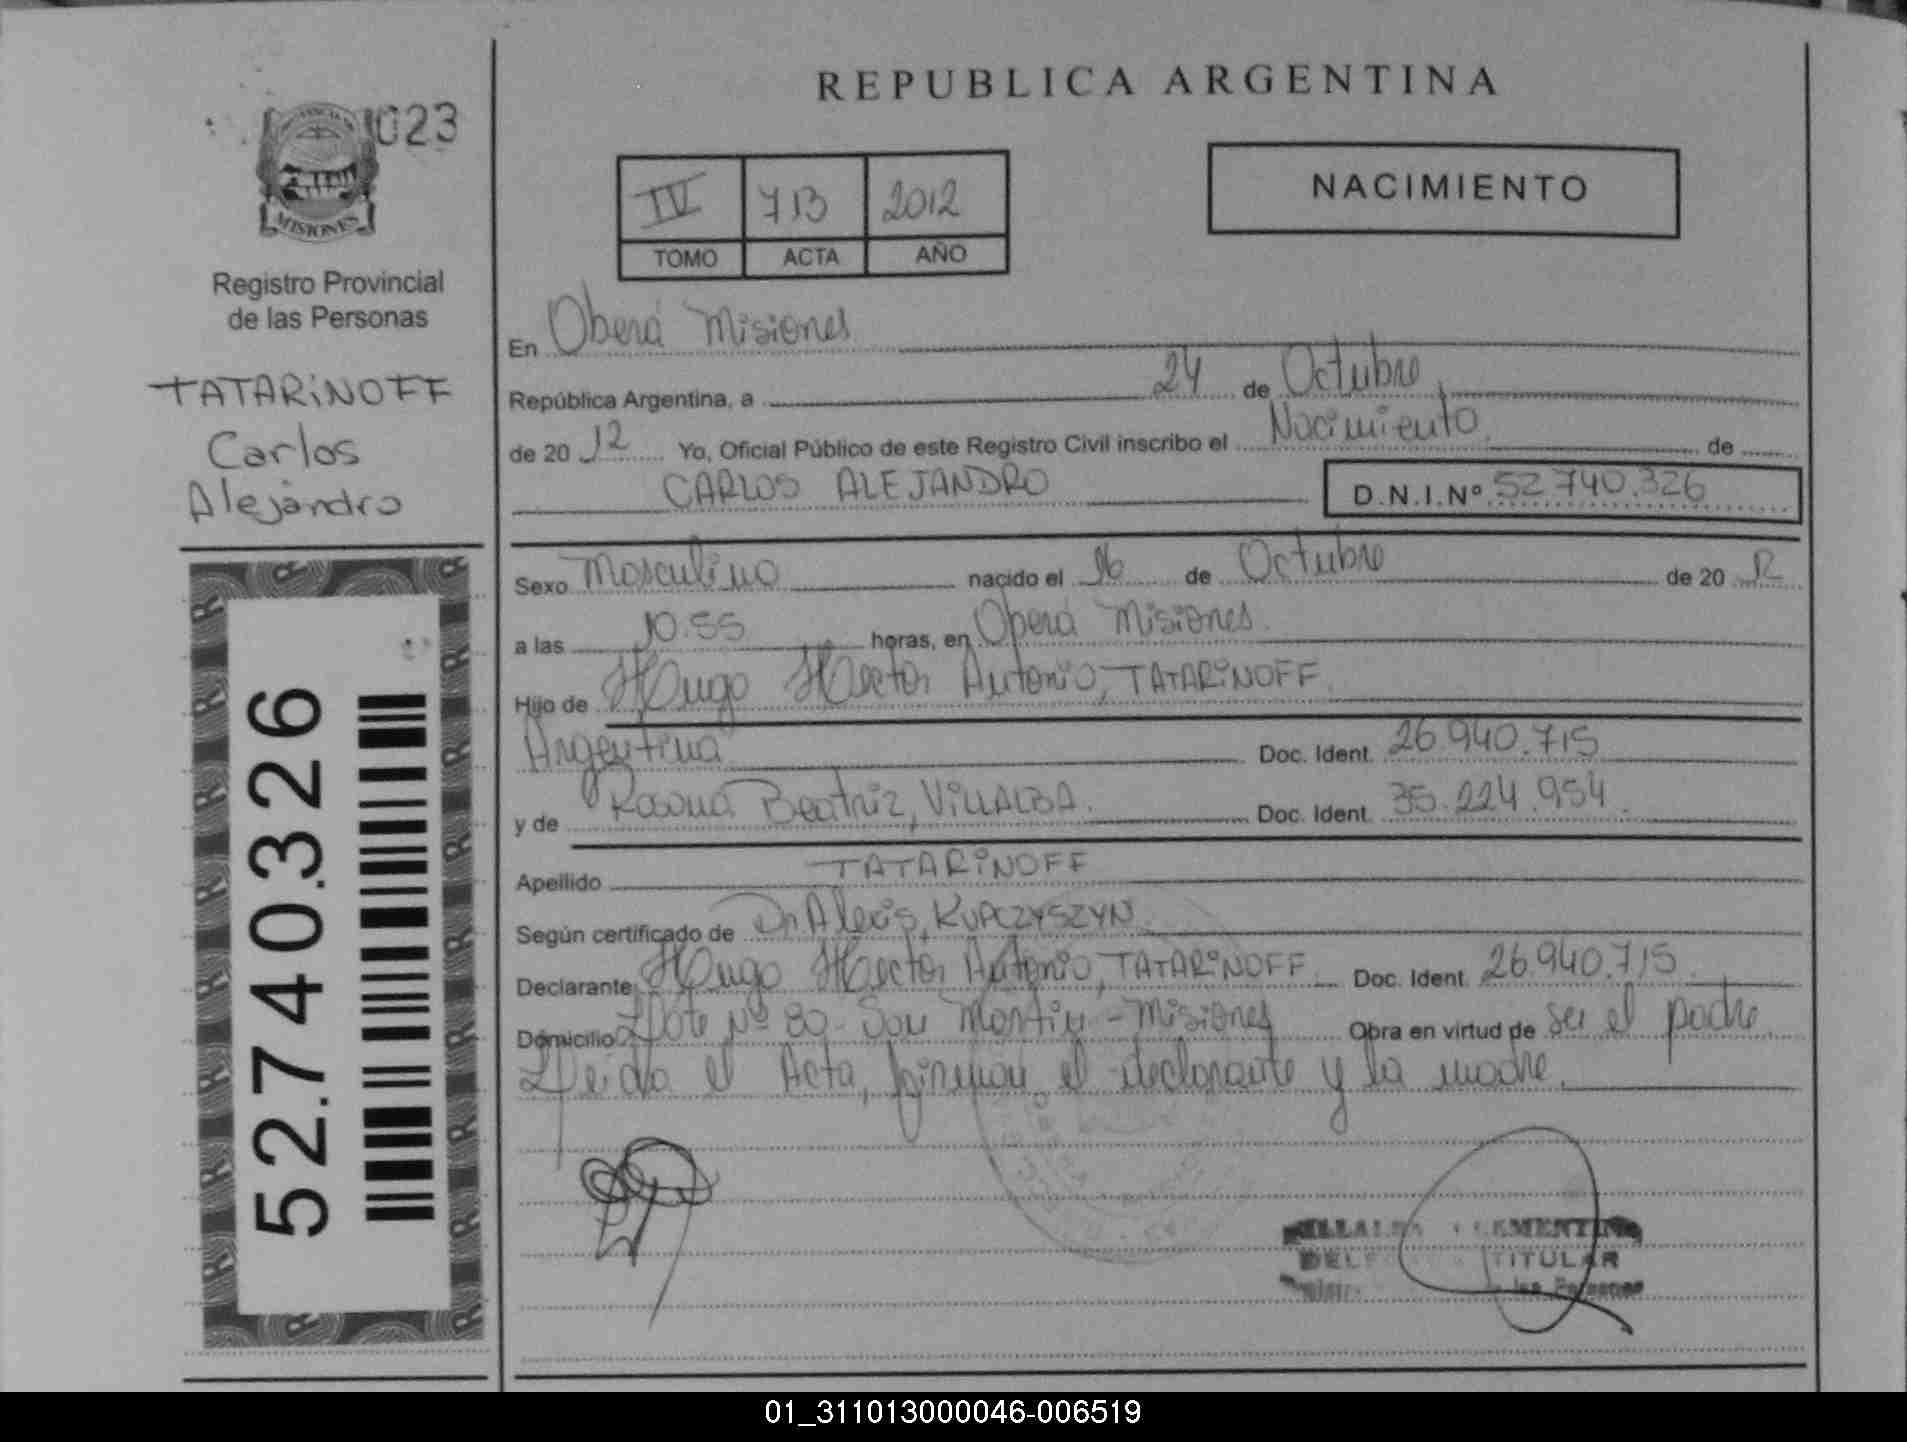 REPUBLICA ARGENTINA
023
MISIONES
Registro Provincial
de las Personas
TATARiNOFF
Carlos
Alejandro
52.740.326
IV 713 2012
TOMO ACTA AÑO
NACIMIENTO
En Oberá Misiones
República Argentina, a 24 de Octubre
de 20 12 Yo, Oficial Público de este Registro Civil inscribo el Nacimiento de
CARLOS ALEJANDRO D.N.I.Nº 52.740.326
Sexo Masculino nacido el 16 de Octubre de 20 12
a las 10.55 horas, en Oberá Misiones.
Hijo de Hugo Hector Antonio, TATARiNOFF.
Argentina Doc. Ident. 26.940.715
y de Beatriz, ViLLALBA. Doc. Ident. 35.224.954.
Apellido TATARiNOFF
Según certificado de Dr. Alexis, KUPCZYSZYN.
Declarante Hugo Hector Antonio, TATARiNOFF. Doc. Ident. 26.940.715
Domicilio Lote Nº 80 - San Martin - Misiones Obra en virtud de ser el padre.
Leida el Acta, firman el declarante y la madre.
TITULAR
01_311013000046-006519